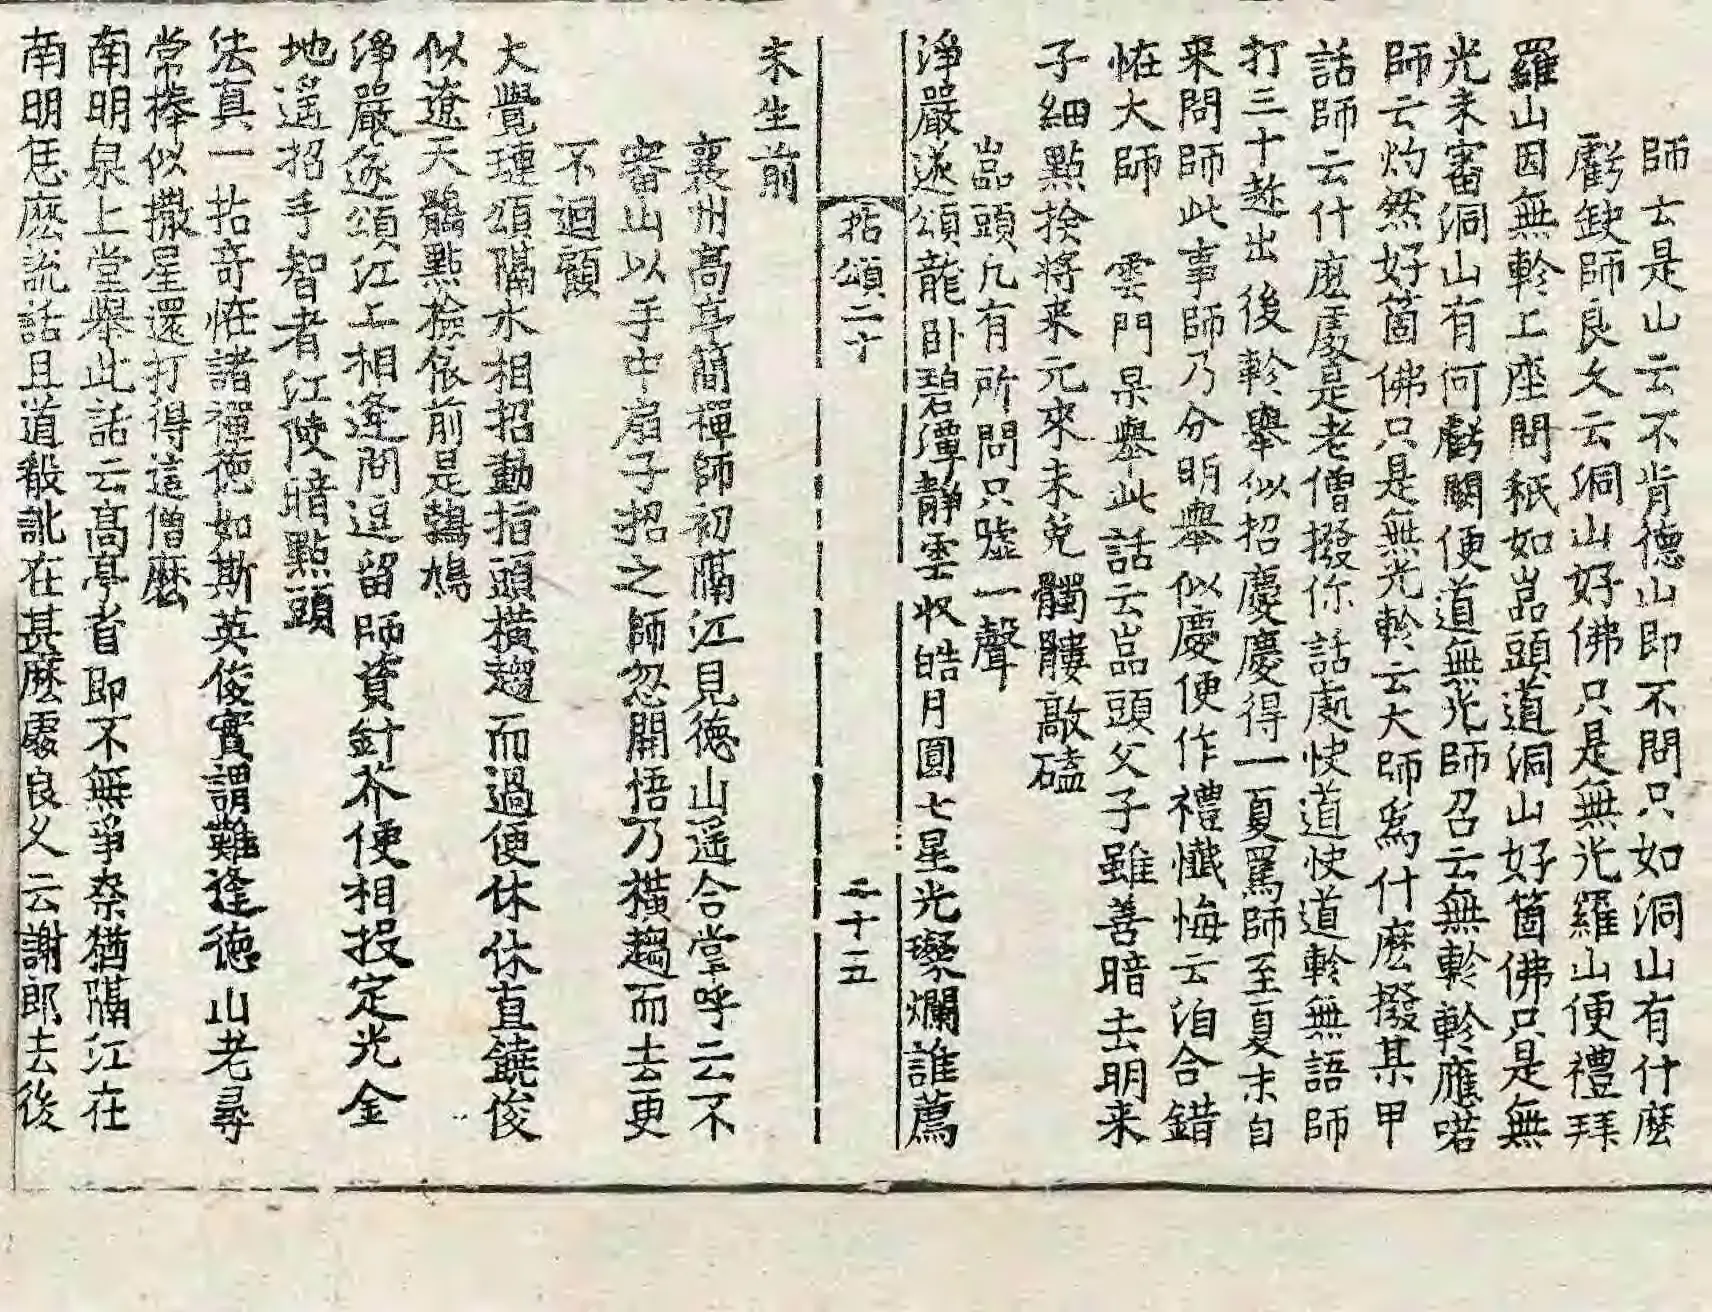 師云是山云不肯德山即不問只如洞山有什麽
虧缺師良久云洞山好佛只是無光羅山便禮拜
羅山因無軫上座問秖如嵓頭道洞山好箇佛只是無
光未審洞山有何虧闕便道無光師召云無軫軫應喏
師云灼然好箇佛只是無光軫云大師爲什麽撥某甲
話師云什麽處是老僧撥你話處快道快道軫無語師
打三十趂出後軫舉似招慶慶得一夏罵師至夏末自
来問師此事師乃分明舉似慶便作禮懺悔云洎合錯
恠大師　雲門杲舉此話云嵓頭父子雖善暗去明来
子細點捡將来元來未免髑髏敲磕
嵓頭凢有所問只噓一聲
淨嚴遂頌龍卧碧潭静雲收皓月圓七星光璨爛誰薦
拈頌二十　二十五
未生前
襄州高亭簡禪師初隔江見德山遥合掌呼云不
審山以手中扇子招之師忽開悟乃橫趨而去更
不迴顧
大覺璉頌隔水相招動指頭橫趨而過便休休直饒俊
似遼天鶻點檢依前是鵓鳩
淨嚴遂頌江上相逢問逗留師資針芥便相投定光金
地遥招手智者江陵暗點頭
法真一拈奇恠諸禪德如斯英俊實謂難逢德山老尋
常棒似撒星還打得這僧麽
南明泉上堂舉此話云高亭者即不無爭柰猶隔江在
南明恁麽說話且道殽訛在甚麽處良久云謝郎去後